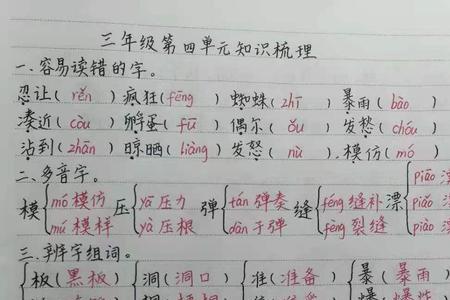 三年级第四单元知识梳理
一、容易读错的字。
忍让( rěn ) 疯狂( fēng ) 蜘蛛( zhī ) 暴雨( bào )
凑近( còu ) 孵蛋( fū ) 偶尔( ǒu ) 发愁( chóu )
沾到( zhān ) 晾晒( liàng ) 发怒( nù ) 模仿( mó )
二、多音字。
模{ mó 模仿 压{ yā 压力 弹{ tán 弹奏 缝{ féng 缝补 漂{ piāo
mú 模样 yà 压根 dàn 子弹 fèng 裂缝 piǎo
piào
三、辨字组词。
板( 黑板 ) 洞( 洞口 ) 准( 准备 ) 暴( 暴雨 )